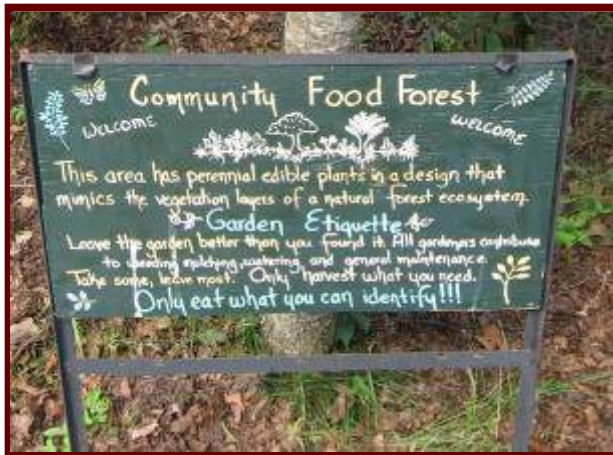 Community Food Forest
WELCOME WELCOME
This area has perennial edible plants in a design that
mimics the vegetation layers of a natural forest ecosystem.
Garden Etiquette
Leave the garden better than you found it. All gardeners contribute
to weeding, mulching, watering, and general maintenance.
Take some, leave most. Only harvest what you need.
Only eat what you can identify!!!